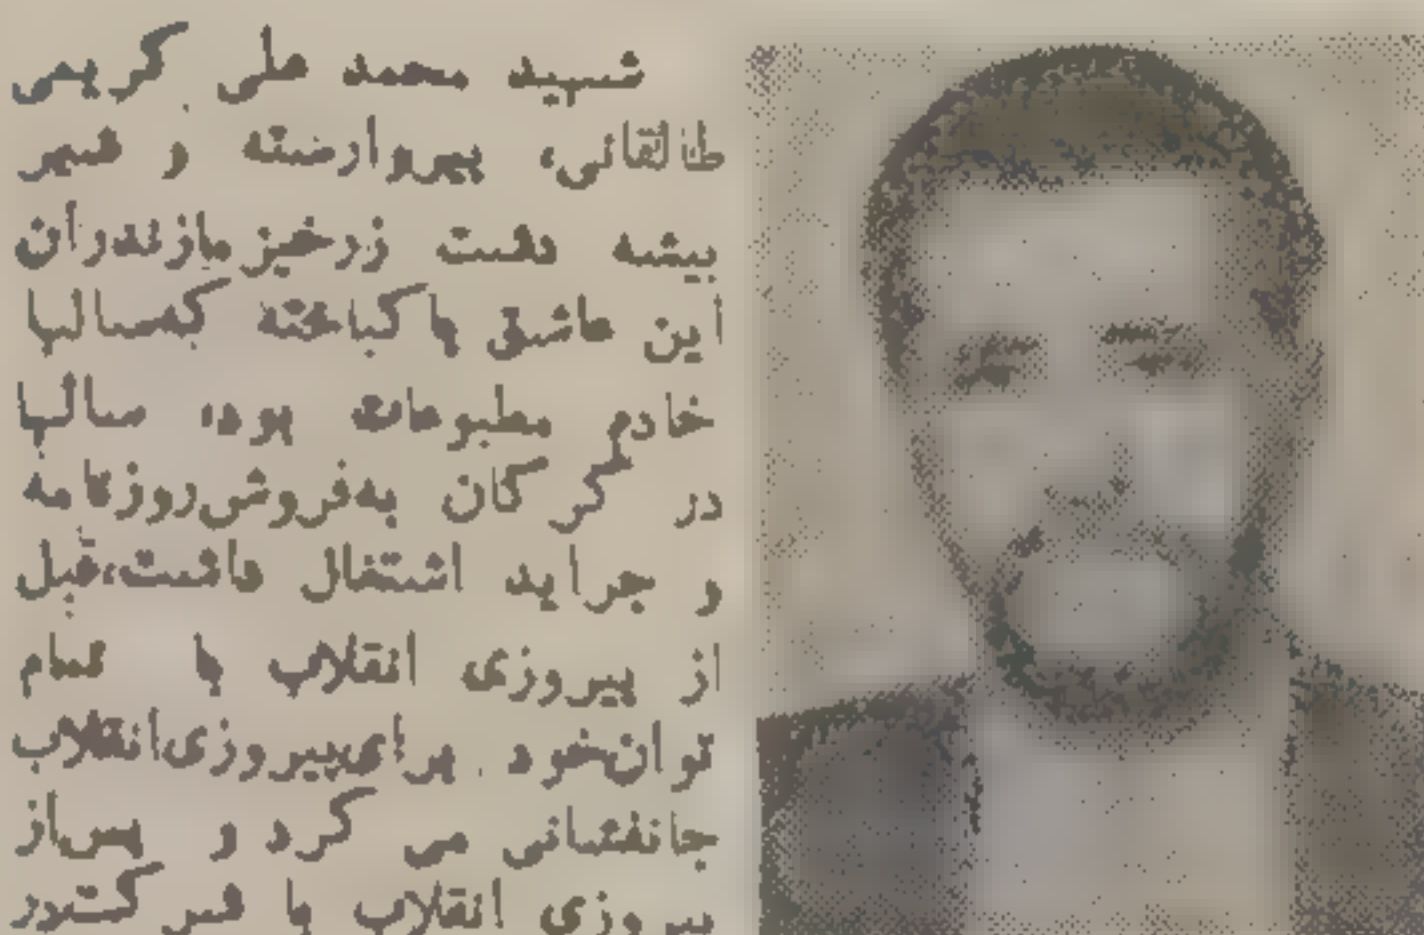 شهید محمد علی کریمی
طالقانی، پیر وارسته و شیر
بیشه دشت زرخیز مازندران
این عاشق پاکباخته که سالها
خادم مطبوعات بود، سالها
در گرگان به فروش روزنامه
و جراید اشتغال داشت، قبل
از پیروزی انقلاب با تمام
توان خود برای پیروزی انقلاب
جانفشانی می کرد و پس از
پیروزی انقلاب با شرکت در